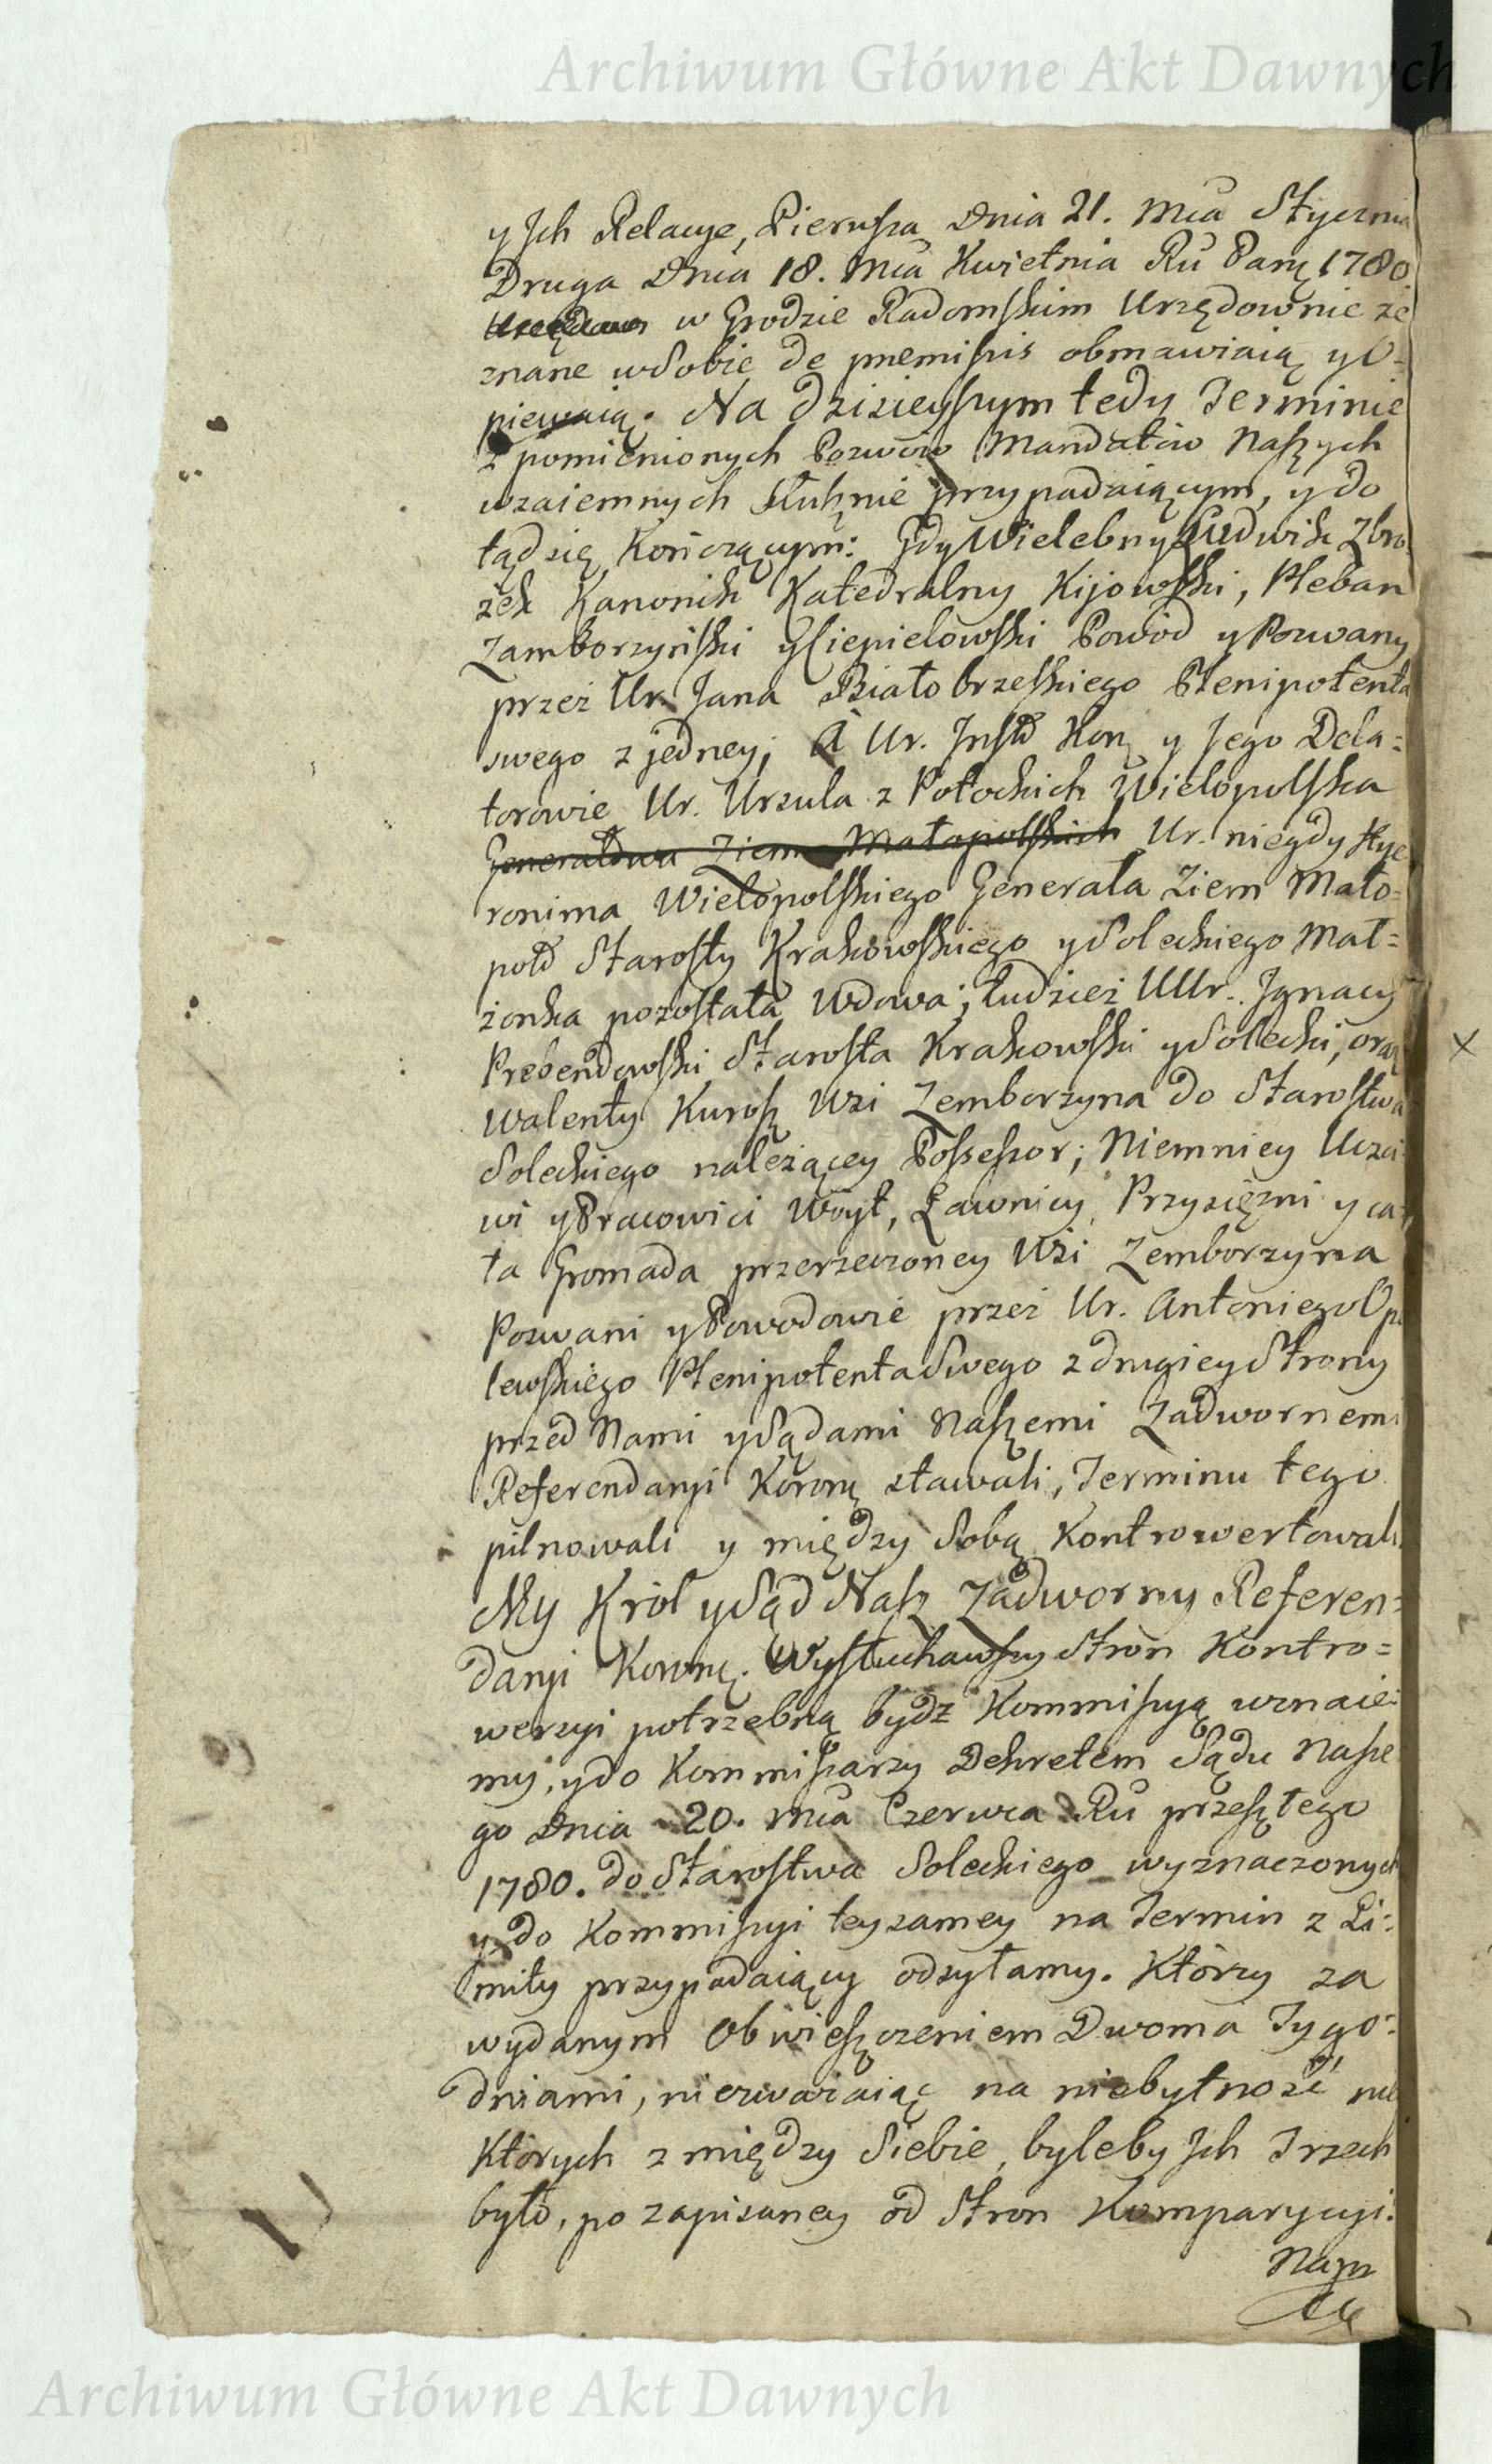 Archiwum Główne Akt Dawnych
y Jch Relacye, Pierwsza Dnia 21. Mca Stycznia
Druga Dnia 18. Mca Kwietnia Ru Pań: 1780
w Grodzie Radomskim Urzędownie ze
znane w Sobie de premissis obmawiaią y O-
piewaią. Na dzisieyszym tedy Terminie
z pomienionych Pozwów Mandatów Naszych
wzaiemnych Słusznie przypadaiącym, y do
tąd się Kończącym: Gdy Wielebny Ludwik Zbro
żek Kanonik Katedralny Kijowski, Pleban
Zamborzyński y Ciepielowski Powod y Pozwany
przez Ur. Jana Białobrzeskiego Plenipotenta
swego z jedney; A Ur. Inst: Kor: y Jego Dela=
torowie Ur. Urzula z Potockich Wielopolska
Generałowa Ziem Małopolskich Ur. niegdy Hye
ronima Wielopolskiego Generała Ziem Mało=
pol: Starosty Krakowskiego y Soleckiego Mał=
żonka pozostała Wdowa; tudzież UUr. Jgnacy
Prebendowski Starosta Krakowski y Solecki, oraz
Walenty Kurosz Wsi Zemborzyna do Starostwa
Soleckiego należącey Possessor; Niemniey Uczci
wi y Pracowici Woyt, Ławnicy, Przysięzni y ca=
ła Gromada przerzeczoney Wsi Zemborzyna
Pozwani y Powodowie przez Ur. Antoniego Opa
lewskiego Plenipotenta Swego z drugiey Strony
przed Nami y Sądami Naszemi Zadwornemi
Referendaryi Koron: stawali, Terminu tego
pilnowali y między Sobą Kontrowertowali.
My Król y Sąd Nasz Zadworny Referen=
daryi Koron: Wysłuchawszy Stron Kontro=
wersyi potrzebną bydz Kommissyą uznaie=
my, y do Kommissarzy Dekretem Sądu Nasze
go Dnia 20. Mca Czerwca Ru przeszłego
1780. do Starostwa Soleckiego wyznaczonych
y do Kommissyi teyzamey na Termin z Li=
mity przypadaiący odsyłamy. Którzy za
wydanym Obwieszczeniem Dwoma Tygo=
dniami, niezważaiąc na niebytność nie
których z między Siebie, byleby Jch Trzech
było, po zapisaney od Stron Komparycyi.
Archiwum Główne Akt Dawnych